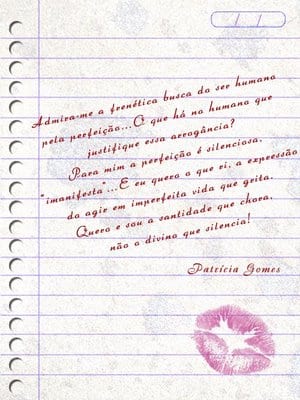 Admira-me a frenética busca do ser humano
pela perfeição...O que há no humano que
justifique essa arrogância?
Para mim a perfeição é silenciosa,
"imanifesta"...E eu quero o que ri, a expressão
do agir em imperfeita vida que grita.
Quero e sou a santidade que chora,
não o divino que silencia!
Patrícia Gomes